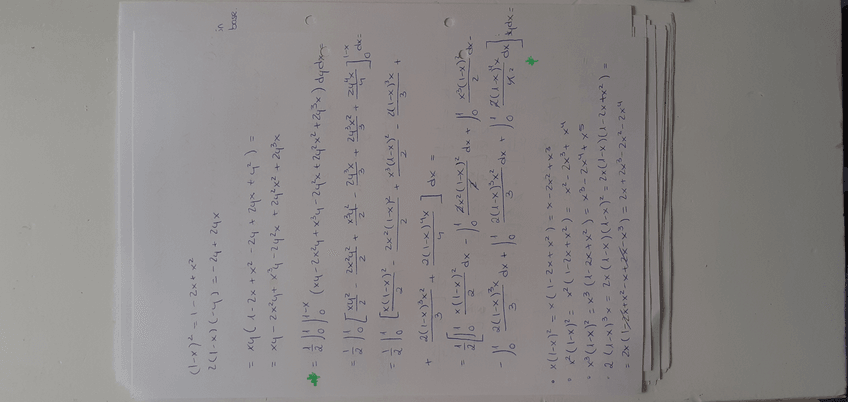 in
base
(1-x)² = 1-2x+x²
2(1-x)(-y) = -2y+2yx
= xy(1-2x+x²-2y+2yx+y²) =
= xy-2x²y+x³y-2y²x+2y²x²+2y³x
= 1/2 ∫₀¹∫₀^{1-x} (xy-2x²y+x³y-2y²x+2y²x²+2y³x) dydx =
= 1/2 ∫₀¹ [xy²/2 - 2x²y²/2 + x³y²/2 - 2y³x/3 + 2y³x²/3 + 2y⁴x/4]₀^{1-x} dx =
= 1/2 ∫₀¹ [x(1-x)²/2 - 2x²(1-x)²/2 + x³(1-x)²/2 - 2(1-x)³x/3 +
+ 2(1-x)³x²/3 + 2(1-x)⁴x/4] dx =
= 1/2 [∫₀¹ x(1-x)²/2 dx - ∫₀¹ 2x²(1-x)²/2 dx + ∫₀¹ x³(1-x)²/2 dx -
- ∫₀¹ 2(1-x)³x/3 dx + ∫₀¹ 2(1-x)³x²/3 dx + ∫₀¹ 2(1-x)⁴x/4 dx] =
• x(1-x)² = x(1-2x+x²) = x-2x²+x³
• x²(1-x)² = x²(1-2x+x²) = x²-2x³+x⁴
• x³(1-x)² = x³(1-2x+x²) = x³-2x⁴+x⁵
• 2(1-x)³x = 2x(1-x)(1-x)² = 2x(1-x)(1-2x+x²) =
= 2x(1-2x+x²-x+2x-x³) = 2x+2x³-2x²-2x⁴